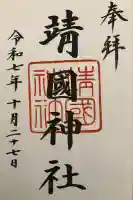 奉拝
靖國神社
靖国神社
令和七年十月二十七日